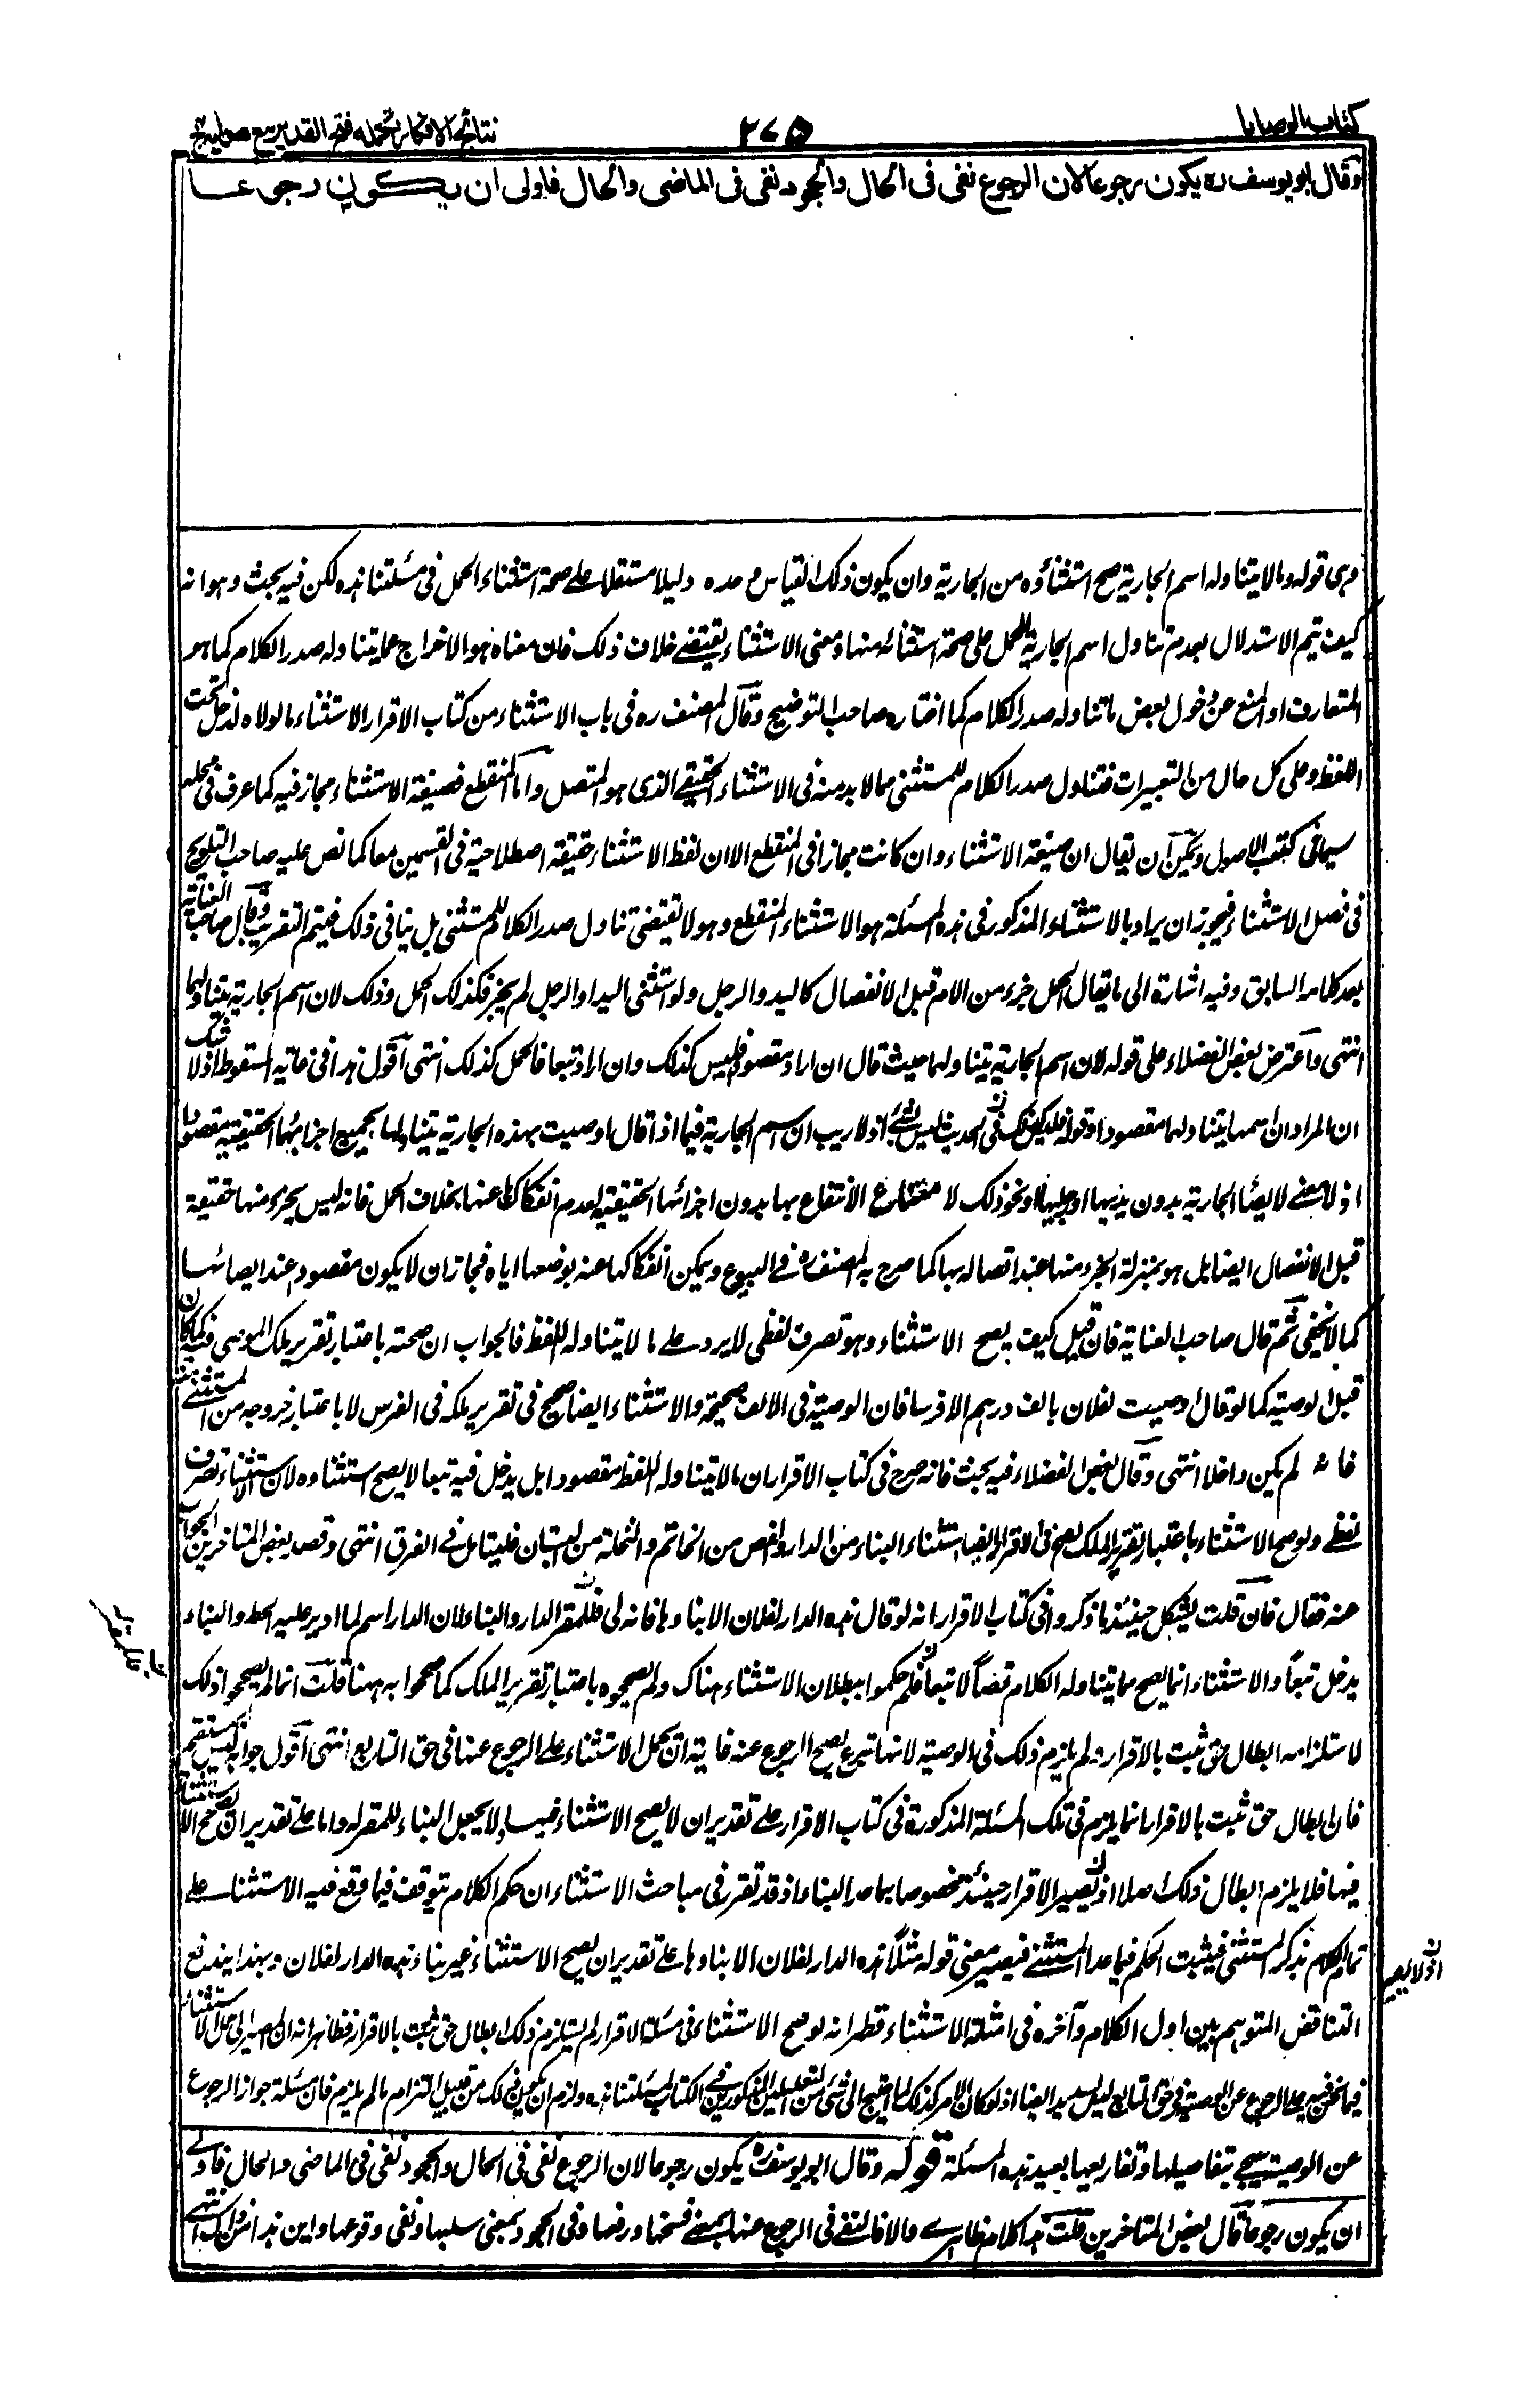 كتاب الوصايا
٢٧٥
نتائج الافكار تكمله فتح القدير مع هدايه ج
وقال ابو يوسف ره يكون رجوعا لان الرجوع نفى فى الحال والجحود نفى فى الماضى والحال فاولى ان يكون رجوعا
وهى قوله وما لا يتناوله اسم الجارية صح استثناؤه من الجارية وان يكون ذلك القياس وحده دليلا مستقلا على صحة استثناء الحمل فى مسئلتنا هذه لكن فيه بحث وهو انه
كيف يتم الاستدلال بعدم تناول اسم الجارية للحمل على صحة استثنائه منها ومعنى الاستثناء يقتضى خلاف ذلك فان معناه هو الاخراج عما يتناوله صدر الكلام كما هو
المتعارف او المنع عن دخول بعض ما تناوله صدر الكلام كما اختاره صاحب التوضيح وقال المصنف ره فى باب الاستثناء من كتاب الاقرار الاستثناء ما لولاه لدخل تحت
اللفظ وعلى كل حال من التعبيرات فتناول صدر الكلام للمستثنى مما لا بد منه فى الاستثناء الحقيقى الذى هو المتصل واما المنقطع فصيغة الاستثناء مجاز فيه كما عرف فى محله
سيما فى كتب الاصول ويمكن ان يقال ان صيغة الاستثناء وان كانت مجازا فى المنقطع الا ان لفظ الاستثناء حقيقة اصطلاحية فى القسمين معا كما نص عليه صاحب التلويح
فى فصل الاستثناء فيجوز ان يراد بالاستثناء المذكور فى هذه المسئلة هو الاستثناء المنقطع وهو لا يقتضى تناول صدر الكلام للمستثنى بل ينافى ذلك فيتم التقريب وقال صاحب العناية
بعد كلامه السابق وفيه اشارة الى ما يقال الحمل جزء من الام قبل الانفصال كاليد والرجل ولو استثنى اليد او الرجل لم يجز فكذلك الحمل وذلك لان اسم الجارية يتناولهما
انتهى واعترض بعض الفضلاء على قوله لان اسم الجارية يتناولهما حيث قال ان اراد مقصودا فليس كذلك وان اراد تبعا فالحمل كذلك انتهى اقول هذا فى غاية السقوط اذ لا شك
ان المراد ان اسمها يتناولهما مقصودا وقوله فليس كذلك فى اليدين ليس بشئ اذ لا ريب ان اسم الجارية فيما اذا قال اوصيت بهذه الجارية يتناولها بجميع اجزائها الحقيقية مقصودا
اذ لا معنى لايصاء الجارية بدون يديها او رجليها ونحو ذلك لامتناع الانتفاع بها بدون اجزائها الحقيقية لعدم انفكاكها عنها بخلاف الحمل فانه ليس بجزء منها حقيقة
قبل الانفصال ايضا بل هو بمنزلة الجزء منها عند اتصاله بها كما صرح به المصنف ره فى البيوع ويمكن انفكاكها عنه بوضعها اياه فجاز ان لا يكون مقصودا عند ايصائها
كما لا يخفى ثم قال صاحب العناية فان قيل كيف يصح الاستثناء وهو تصرف لفظى لا يرد على ما لا يتناوله اللفظ فالجواب ان صحته باعتبار تقرير ملك الموصى فيه كما كان
قبل الوصية كما لو قال اوصيت لفلان بالف درهم الا فرسا فان الوصية فى الالف صحيحة والاستثناء ايضا صحيح فى تقرير ملكه فى الفرس لا باعتبار خروجه من المستثنى منه
فانه لم يكن داخلا انتهى وقال بعض الفضلاء فيه بحث فانه صرح فى كتاب الاقرار ان ما لا يتناوله اللفظ مقصودا بل يدخل فيه تبعا لا يصح استثناؤه لان الاستثناء تصرف
لفظى ولو صح الاستثناء باعتبار تقرير الملك لصح فى الاقرار ايضا استثناء البناء من الدار والفص من الخاتم والنخلة من البستان فليتامل فى الفرق انتهى وقصد بعض المتاخرين الجواب
عنه فقال فان قلت يشكل حينئذ ما ذكروا فى كتاب الاقرار انه لو قال هذه الدار لفلان الا بناءها فانه لى فللمقر له الدار والبناء لان الدار اسم لما ادير عليه الحائط والبناء
يدخل تبعًا والاستثناء انما يصح مما يتناوله الكلام قصدًا لا تبعا فلم حكموا ببطلان الاستثناء هناك ولم يصححوه باعتبار تقرير الملك كما صححوا به ههنا قلت انما لم يصححوا ذلك
لاستلزامه ابطال حق ثبت بالاقرار ولم يلزم ذلك فى الوصية لانها تبرع يصح الرجوع عنه غايته ان يحمل الاستثناء على الرجوع عنها فى حق التابع انتهى اقول جوابه ليس بمستقيم
فان ابطال حق ثبت بالاقرار انما يلزم فى تلك المسئلة المذكورة فى كتاب الاقرار على تقدير ان لا يصح الاستثناء فيها ولا يجعل البناء للمقر له واما على تقدير ان يصح الاستثناء
فيها فلا يلزم ابطال ذلك اصلا اذ يصير الاقرار حينئذ مخصوصا بما عدا البناء اذ قد تقرر فى مباحث الاستثناء ان حكم الكلام يتوقف فيما وقع فيه الاستثناء على
تمام الكلام بذكر المستثنى فيثبت الحكم فيما عدا المستثنى فيصير معنى قوله مثلًا هذه الدار لفلان الا بناءها على تقدير ان يصح الاستثناء غير بناء هذه الدار لفلان وبهذا يندفع
التناقض المتوهم بين اول الكلام وآخره فى امثلة الاستثناء فظهر انه لو صح الاستثناء فى مسئلة الاقرار لم يستلزم ذلك ابطال حق ثبت بالاقرار فظاهر انه ان المصير الى حمل الاستثناء
فيما نحن فيه على الرجوع عن الوصية فى حق التابع ليس بسديد ايضا اذ لو كان الامر كذلك لما احتيج الى شئ من التعليلين المذكورين فى الكتاب لمسئلتنا هذه ولزم ان يكون ذلك من قبيل التزام ما لم يلزم فان مسئلة جواز الرجوع
عن الوصية سيجئ بتفاصيلها وتفاريعها بعيد هذه المسئلة قوله وقال ابو يوسف ره يكون رجوعا لان الرجوع نفى فى الحال والجحود نفى فى الماضى والحال فاولى
ان يكون رجوعا قال بعض المتاخرين قلت هذا كلام ظاهرى والا فالنفى فى الرجوع عنها بمعنى فسخها ورفعها وفى الجحود بمعنى سلبها ونفى وقوعها واين هذا من ذلك انتهى